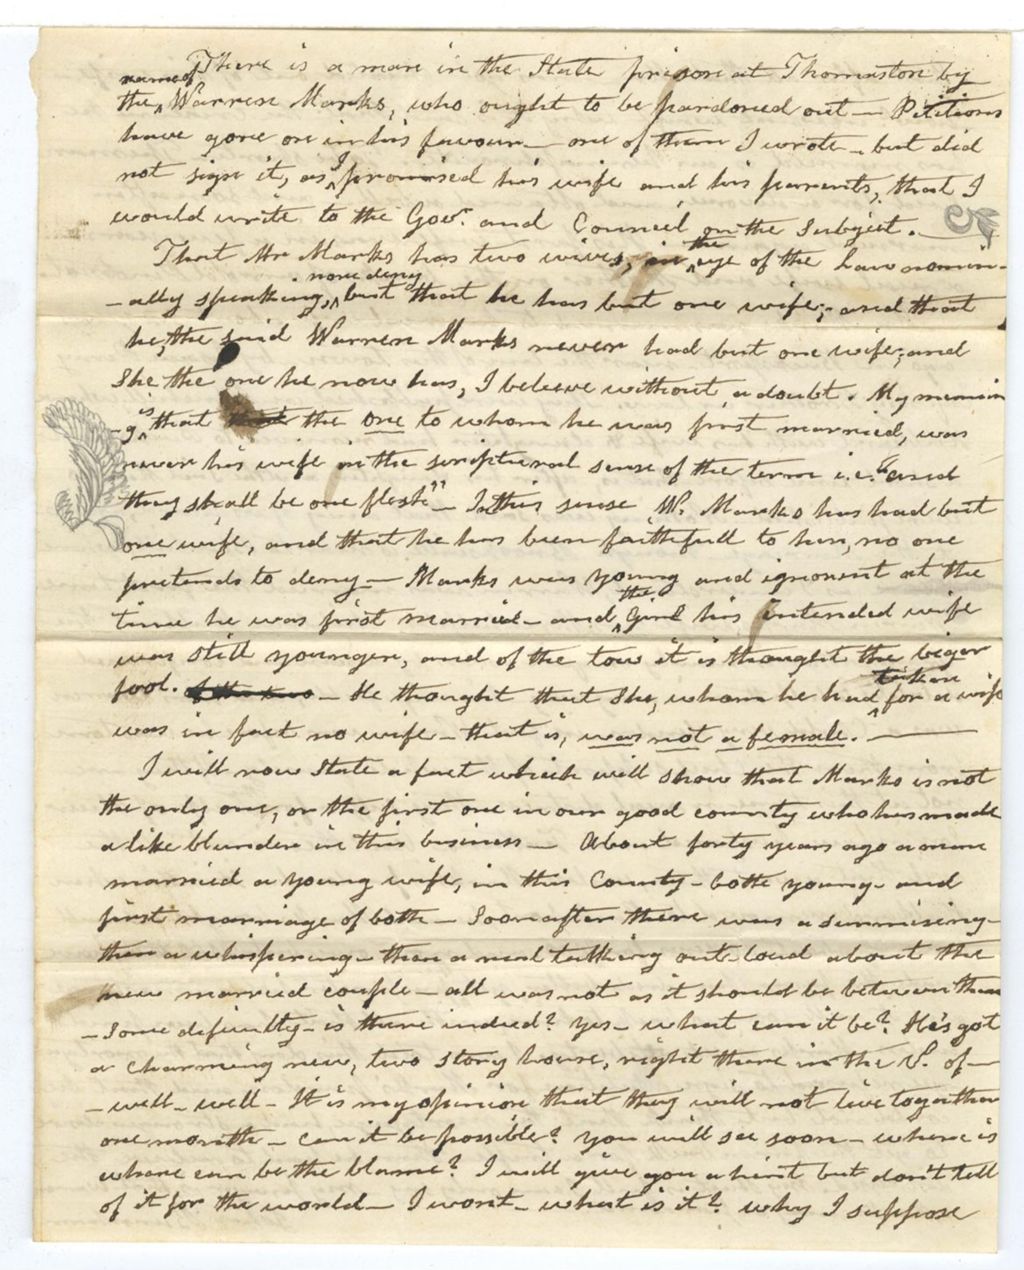 There is a man in the State prison at Thomaston by
name of
the Warren Marks, who ought to be pardoned out — Petitions
have gone on in his favour — one of them I wrote — but did
not sign it, as I promised his wife and his parents, that I
would write to the Gov.r and Council on the Subject. —
That Mr Marks has two wives, in the eye of the Law nomin-
none deny
-ally speaking, but that he has but one wife; and that
he, the said Warren Marks never had but one wife; and
She the one he now has, I beleive without a doubt. My meanin
-g is that the one to whom he was first married, was
never his wife in the scriptural sense of the term i.e. "and
they shall be one flesh" — In this sense W. Marks has had but
one wife, and that he has been faithfull to her, no one
pretends to deny — Marks was young and ignorent at the
time he was first married — and the Girl his intended wife
was still younger, and of the tow it is thought the biger
fool. of the two — He thought that She, whom he had taken for a wife
was in fact no wife — that is, was not a female. —
I will now State a fact which will show that Marks is not
the only one, or the first one in our good county who has made
a like blunder in this business — About forty years ago a man
married a young wife, in this County — both young — and
first marriage of both — Soon after there was a surmising —
then a whispering — then a real talking out-loud about the
new married couple — all was not as it should be between them
— Some dificulty — is there indeed? Yes — what can it be? He's got
a charming new, two story house, right there in the V. of —
— well — well — It is my opinion that they will not live togather
one month — can it be possible? you will see soon — where is
where can be the blame? I will give you a hint but don't tell
of it for the world — I wont — what is it? why I suppose